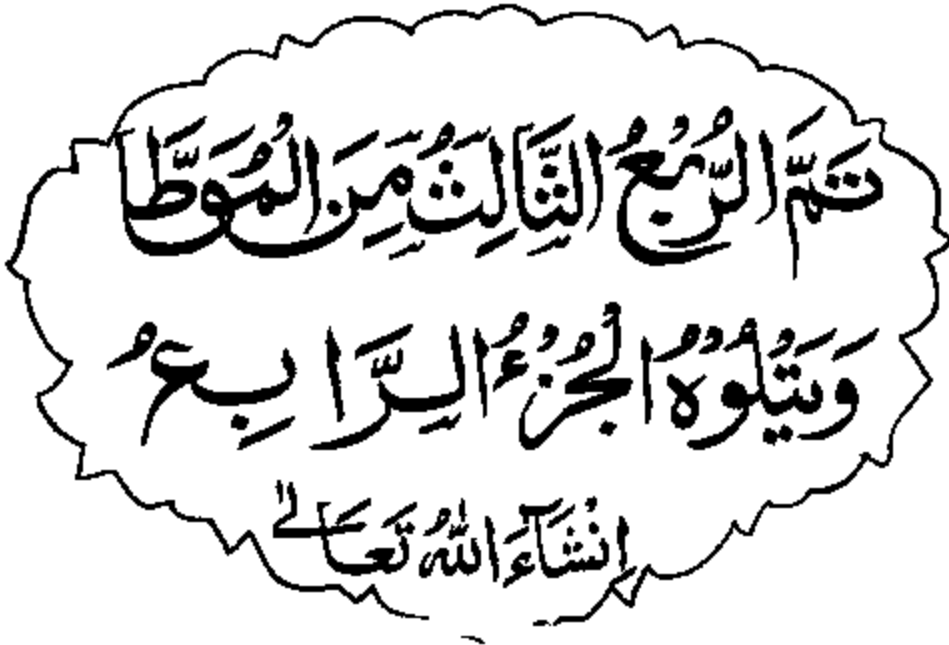 تَمَّ الرُّبُعُ الثَّالِثُ مِنَ الْمُوَطَّا
وَيَتْلُوْهُ الْجُزْءُ الرَّابِعُ
اِنْشَآءَ اللّٰهُ تَعَالٰے